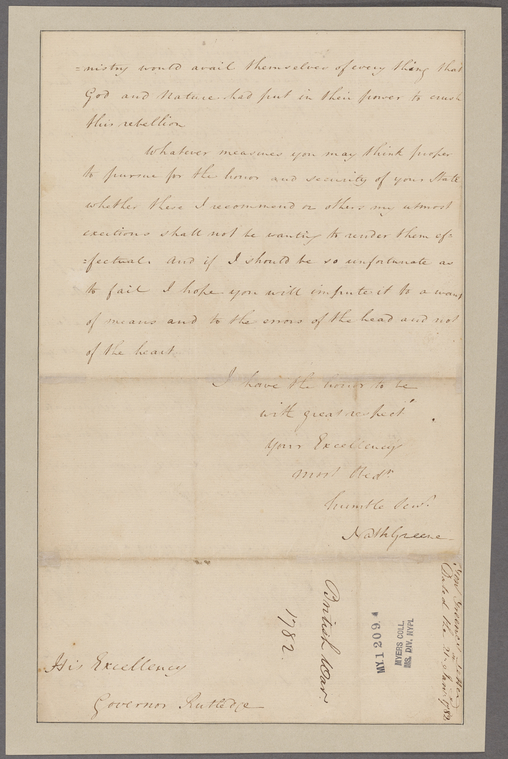 =nistry would avail themselves of every thing that
God and Nature had put in their power to crush
this rebellion
Whatever measures you may think proper
to pursue for the honor and security of your State
whether these I recommend or others my utmost
exertions shall not be wanting to render them ef=
=fectual. And if I should be so unfortunate as
to fail I hope you will impute it to a want
of means and to the errors of the head and not
of the heart.
I have the honor to be
with great respect
Your Excellencys
most Obedt
humble Servt
Nath Greene
His Excellency
Governor Rutledge
British War.
1782.
MY. 1209.4
MYERS COLL.
MS. DIV. NYPL
Genl Greene's Letter
Dated the